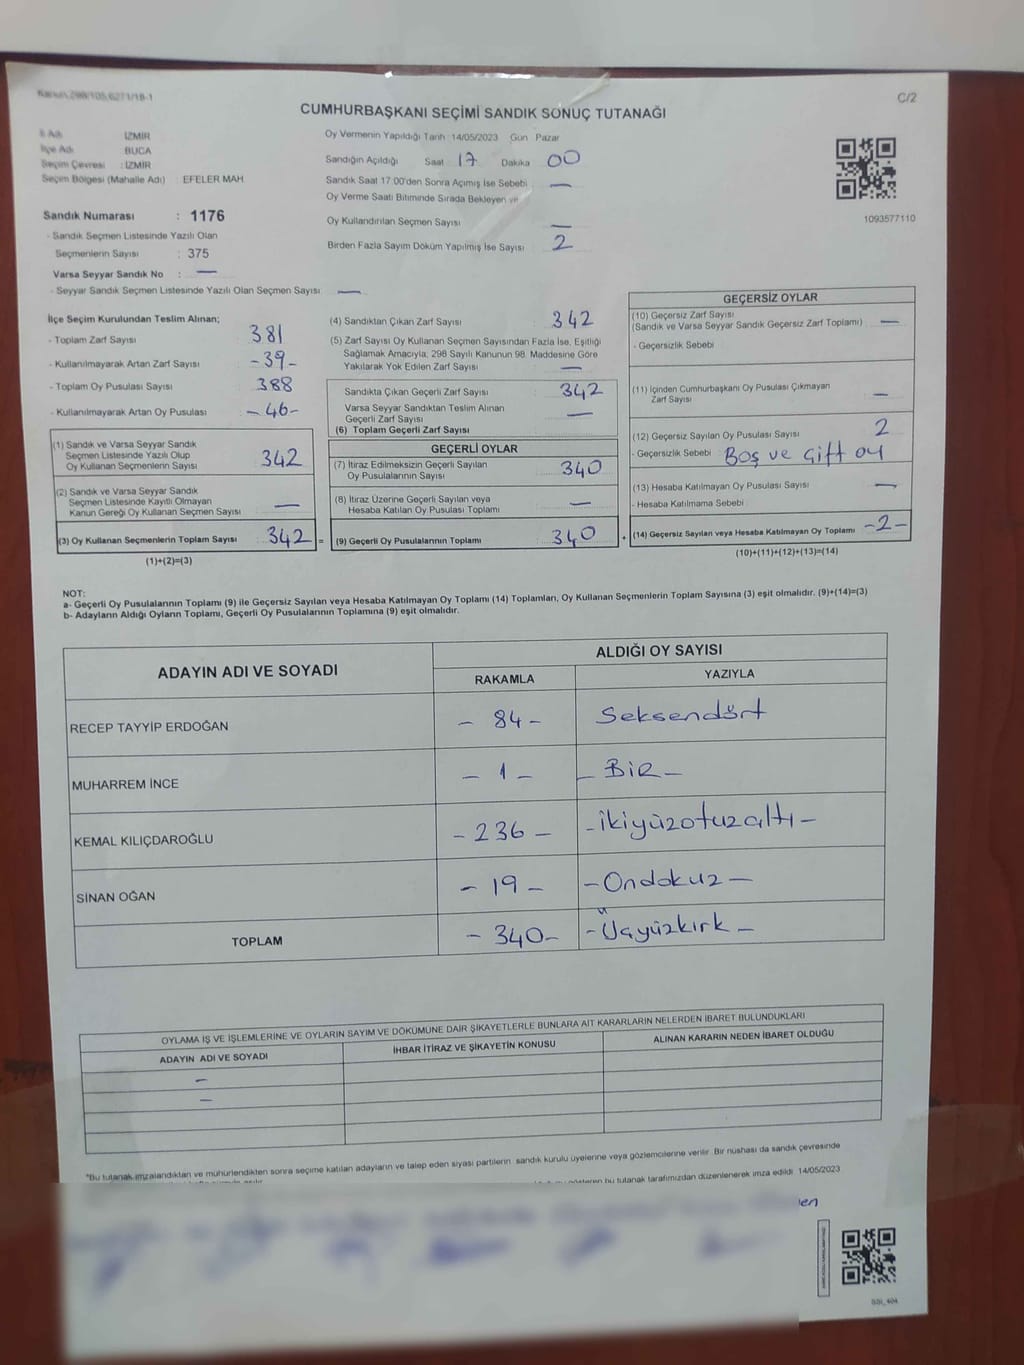 Kanun,298/105,6271/18-1
C/2
CUMHURBAŞKANI SEÇİMİ SANDIK SONUÇ TUTANAĞI
İl Adı İZMİR
İlçe Adı BUCA
Seçim Çevresi : İZMİR
Seçim Bölgesi (Mahalle Adı) : EFELER MAH
Oy Vermenin Yapıldığı Tarih 14/05/2023 Gün Pazar
Sandığın Açıldığı Saat 17 Dakika 00
Sandık Saat 17:00'den Sonra Açımış İse Sebebi —
Oy Verme Saati Bitiminde Sırada Bekleyen ve
Oy Kullandırılan Seçmen Sayısı —
Birden Fazla Sayım Döküm Yapılmış İse Sayısı 2
1093577110
Sandık Numarası : 1176
- Sandık Seçmen Listesinde Yazılı Olan
Seçmenlerin Sayısı : 375
Varsa Seyyar Sandık No : —
- Seyyar Sandık Seçmen Listesinde Yazılı Olan Seçmen Sayısı —
İlçe Seçim Kurulundan Teslim Alınan;
- Toplam Zarf Sayısı 381
- Kullanılmayarak Artan Zarf Sayısı -39-
- Toplam Oy Pusulası Sayısı 388
- Kullanılmayarak Artan Oy Pusulası -46-
(1) Sandık ve Varsa Seyyar Sandık
Seçmen Listesinde Yazılı Olup
Oy Kullanan Seçmenlerin Sayısı 342
(2) Sandık ve Varsa Seyyar Sandık
Seçmen Listesinde Kayıtlı Olmayan
Kanun Gereği Oy Kullanan Seçmen Sayısı —
(3) Oy Kullanan Seçmenlerin Toplam Sayısı 342 =
(1)+(2)=(3)
(4) Sandıktan Çıkan Zarf Sayısı 342
(5) Zarf Sayısı Oy Kullanan Seçmen Sayısından Fazla İse, Eşitliği
Sağlamak Amacıyla, 298 Sayılı Kanunun 98. Maddesine Göre
Yakılarak Yok Edilen Zarf Sayısı —
Sandıkta Çıkan Geçerli Zarf Sayısı 342
Varsa Seyyar Sandıktan Teslim Alınan
Geçerli Zarf Sayısı —
(6) Toplam Geçerli Zarf Sayısı
GEÇERLİ OYLAR
(7) İtiraz Edilmeksizin Geçerli Sayılan
Oy Pusulalarının Sayısı 340
(8) İtiraz Üzerine Geçerli Sayılan veya
Hesaba Katılan Oy Pusulası Toplamı —
(9) Geçerli Oy Pusulalarının Toplamı 340 +
GEÇERSİZ OYLAR
(10) Geçersiz Zarf Sayısı
(Sandık ve Varsa Seyyar Sandık Geçersiz Zarf Toplamı) —
- Geçersizlik Sebebi
(11) İçinden Cumhurbaşkanı Oy Pusulası Çıkmayan
Zarf Sayısı —
(12) Geçersiz Sayılan Oy Pusulası Sayısı 2
- Geçersizlik Sebebi Boş ve Çift oy
(13) Hesaba Katılmayan Oy Pusulası Sayısı —
- Hesaba Katılmama Sebebi
(14) Geçersiz Sayılan veya Hesaba Katılmayan Oy Toplamı -2-
(10)+(11)+(12)+(13)=(14)
NOT:
a- Geçerli Oy Pusulalarının Toplamı (9) ile Geçersiz Sayılan veya Hesaba Katılmayan Oy Toplamı (14) Toplamları, Oy Kullanan Seçmenlerin Toplam Sayısına (3) eşit olmalıdır. (9)+(14)=(3)
b- Adayların Aldığı Oyların Toplamı, Geçerli Oy Pusulalarının Toplamına (9) eşit olmalıdır.
ADAYIN ADI VE SOYADI
ALDIĞI OY SAYISI
RAKAMLA YAZIYLA
RECEP TAYYİP ERDOĞAN - 84 - Seksendört
MUHARREM İNCE - 1 - - BİR -
KEMAL KILIÇDAROĞLU - 236 - - ikiyüzotuzaltı -
SİNAN OĞAN - 19 - - Ondokuz -
TOPLAM - 340 - - Üçyüzkırk -
OYLAMA İŞ VE İŞLEMLERİNE VE OYLARIN SAYIM VE DÖKÜMÜNE DAİR ŞİKAYETLERLE BUNLARA AİT KARARLARIN NELERDEN İBARET BULUNDUKLARI
ADAYIN ADI VE SOYADI İHBAR İTİRAZ VE ŞİKAYETİN KONUSU ALINAN KARARIN NEDEN İBARET OLDUĞU
—
—
*Bu tutanak imzalandıktan ve mühürlendikten sonra seçime katılan adayların ve talep eden siyasi partilerin sandık kurulu üyelerine veya gözlemcilerine verilir. Bir nüshası da sandık çevresinde
bu tutanak tarafımızdan düzenlenerek imza edildi. 14/05/2023